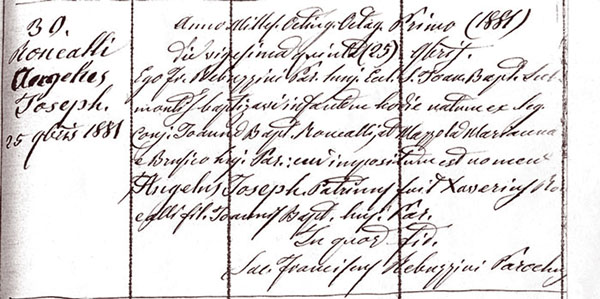 39.
Roncalli
Angelus
Joseph.
25 9bris 1881
Anno Milles. Octing. Octog. Primo (1881)
die vigesima quinta (25) 9bris.
Ego Fr. Rebuzzini Par. huj. Eccl. S. Joan. Bapt. Sub
monte baptizavi infantem hodie natum ex leg.
conj. Joanne Bapt. Roncalli, et Mazzola Marianna
e Brusico huj. Par.: cui impositum est nomen
Angelus Joseph. Patrinus fuit Xaverius Ron
calli fil. Joannis Bapt. huj. Par.
In quor. fid.
Sac. Franciscus Rebuzzini Parochus